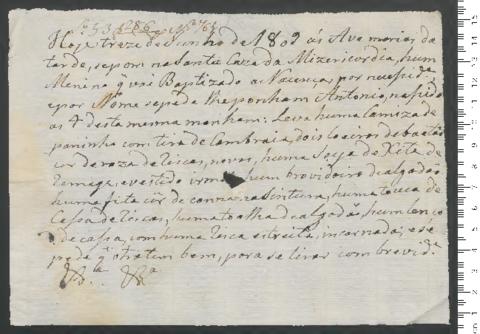 Hoje treze de Junho de 1802 ás Ave marias da
tarde, se poem na Santa Caza da Mizericordia, hum
Menino q̃ vai Baptizado ao Nascença, por necessid.e
e por Nome se pede lhe ponham Antonio, nascido
as 4 desta mesma manham: Leva huma Camiza de
paninho com tira de Cambraia, dois coeiros de baetão
cor de roza de riscas, novos, huma Saya de Xita de
e vestido irmão, hum de algodão
huma fita cor de na Sintura, huma touca de
Cassa de riscas, huma toalha de algodão, hum lenço
de cassa, com huma risca estreita, incarnada; e se
pede q̃ o tratem bem, para se tirar com brevid.e